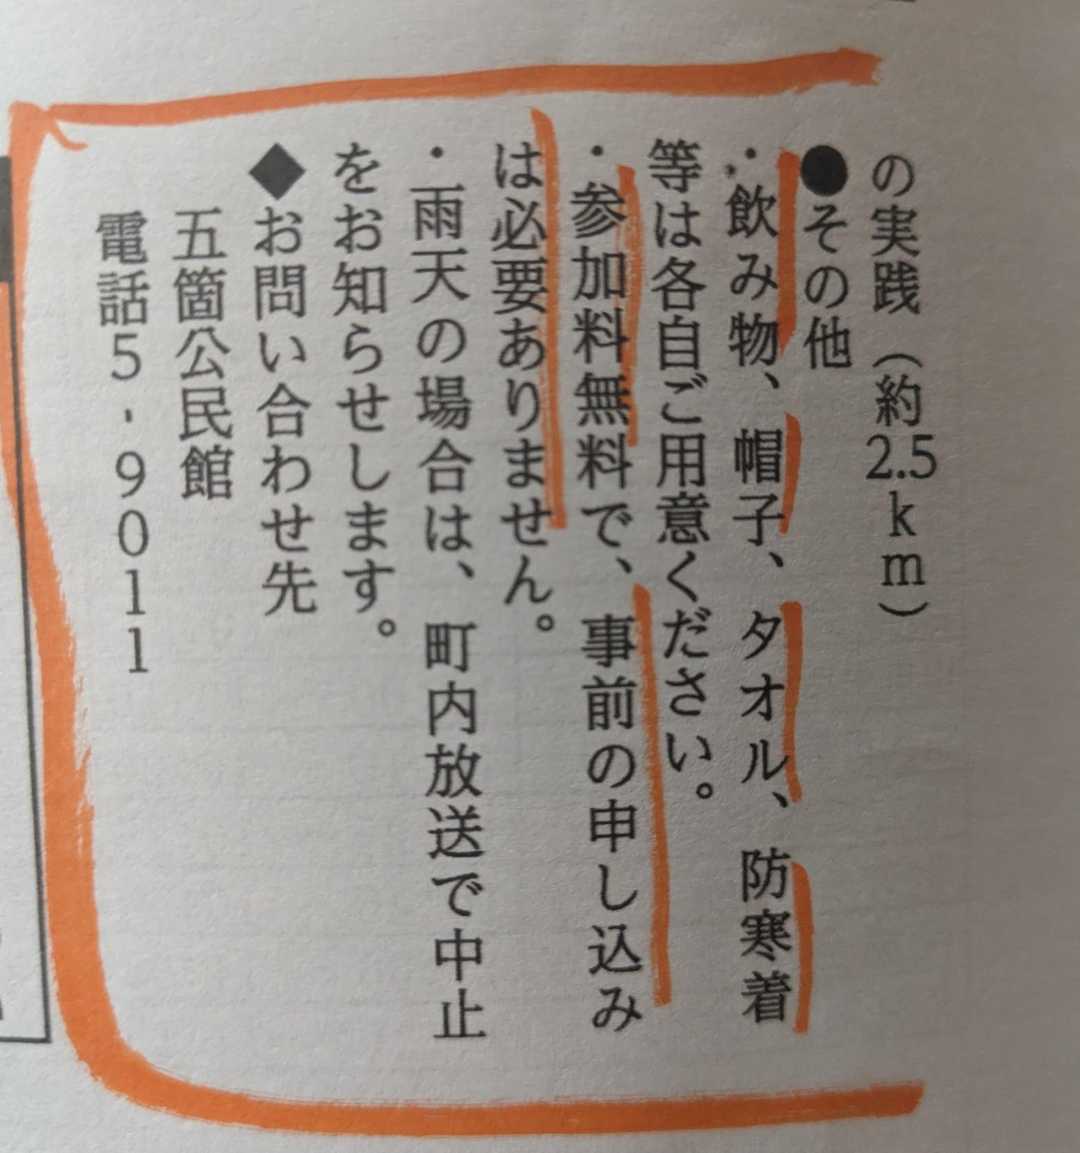 の実践（約2.5km）
●その他
・飲み物、帽子、タオル、防寒着
等は各自ご用意ください。
・参加料無料で、事前の申し込み
は必要ありません。
・雨天の場合は、町内放送で中止
をお知らせします。
◆お問い合わせ先
五箇公民館
電話5-9011